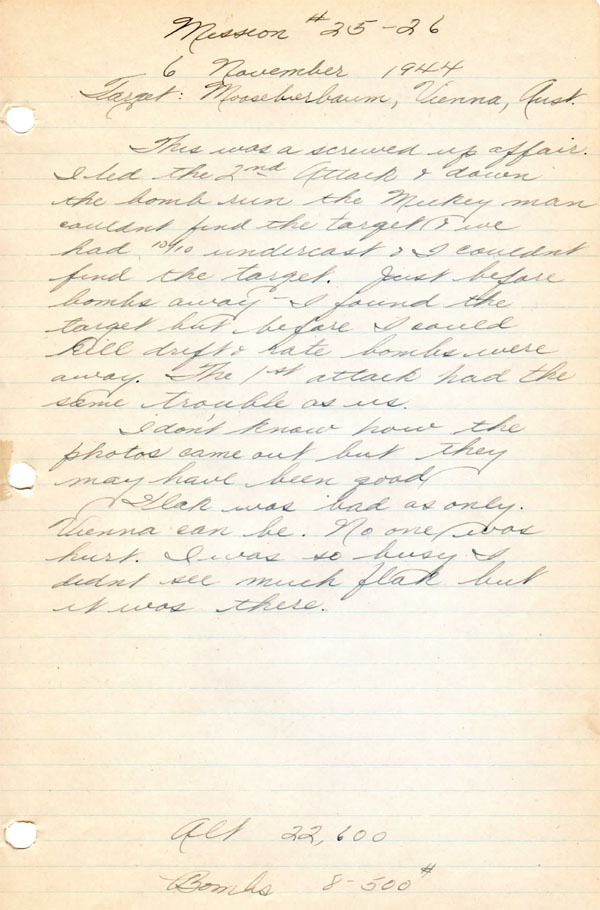 Mission # 25-26
6 November 1944
Target: Moosebierbaum, Vienna, Aust.
This was a screwed up affair.
I led the 2nd Attack & down
the bomb run the Mickey man
couldnt find the target & we
had 10/10 undercast & I couldnt
find the target. Just before
bombs away I found the
target but before I could
kill drift & rate bombs were
away. The 1st attack had the
same trouble as us.
I dont know how the
photos came out but they
may have been good
Flak was bad as only
Vienna can be. No one was
hurt. I was so busy I
didnt see much flak but
it was there.
Alt 22,600
Bombs 8-500#